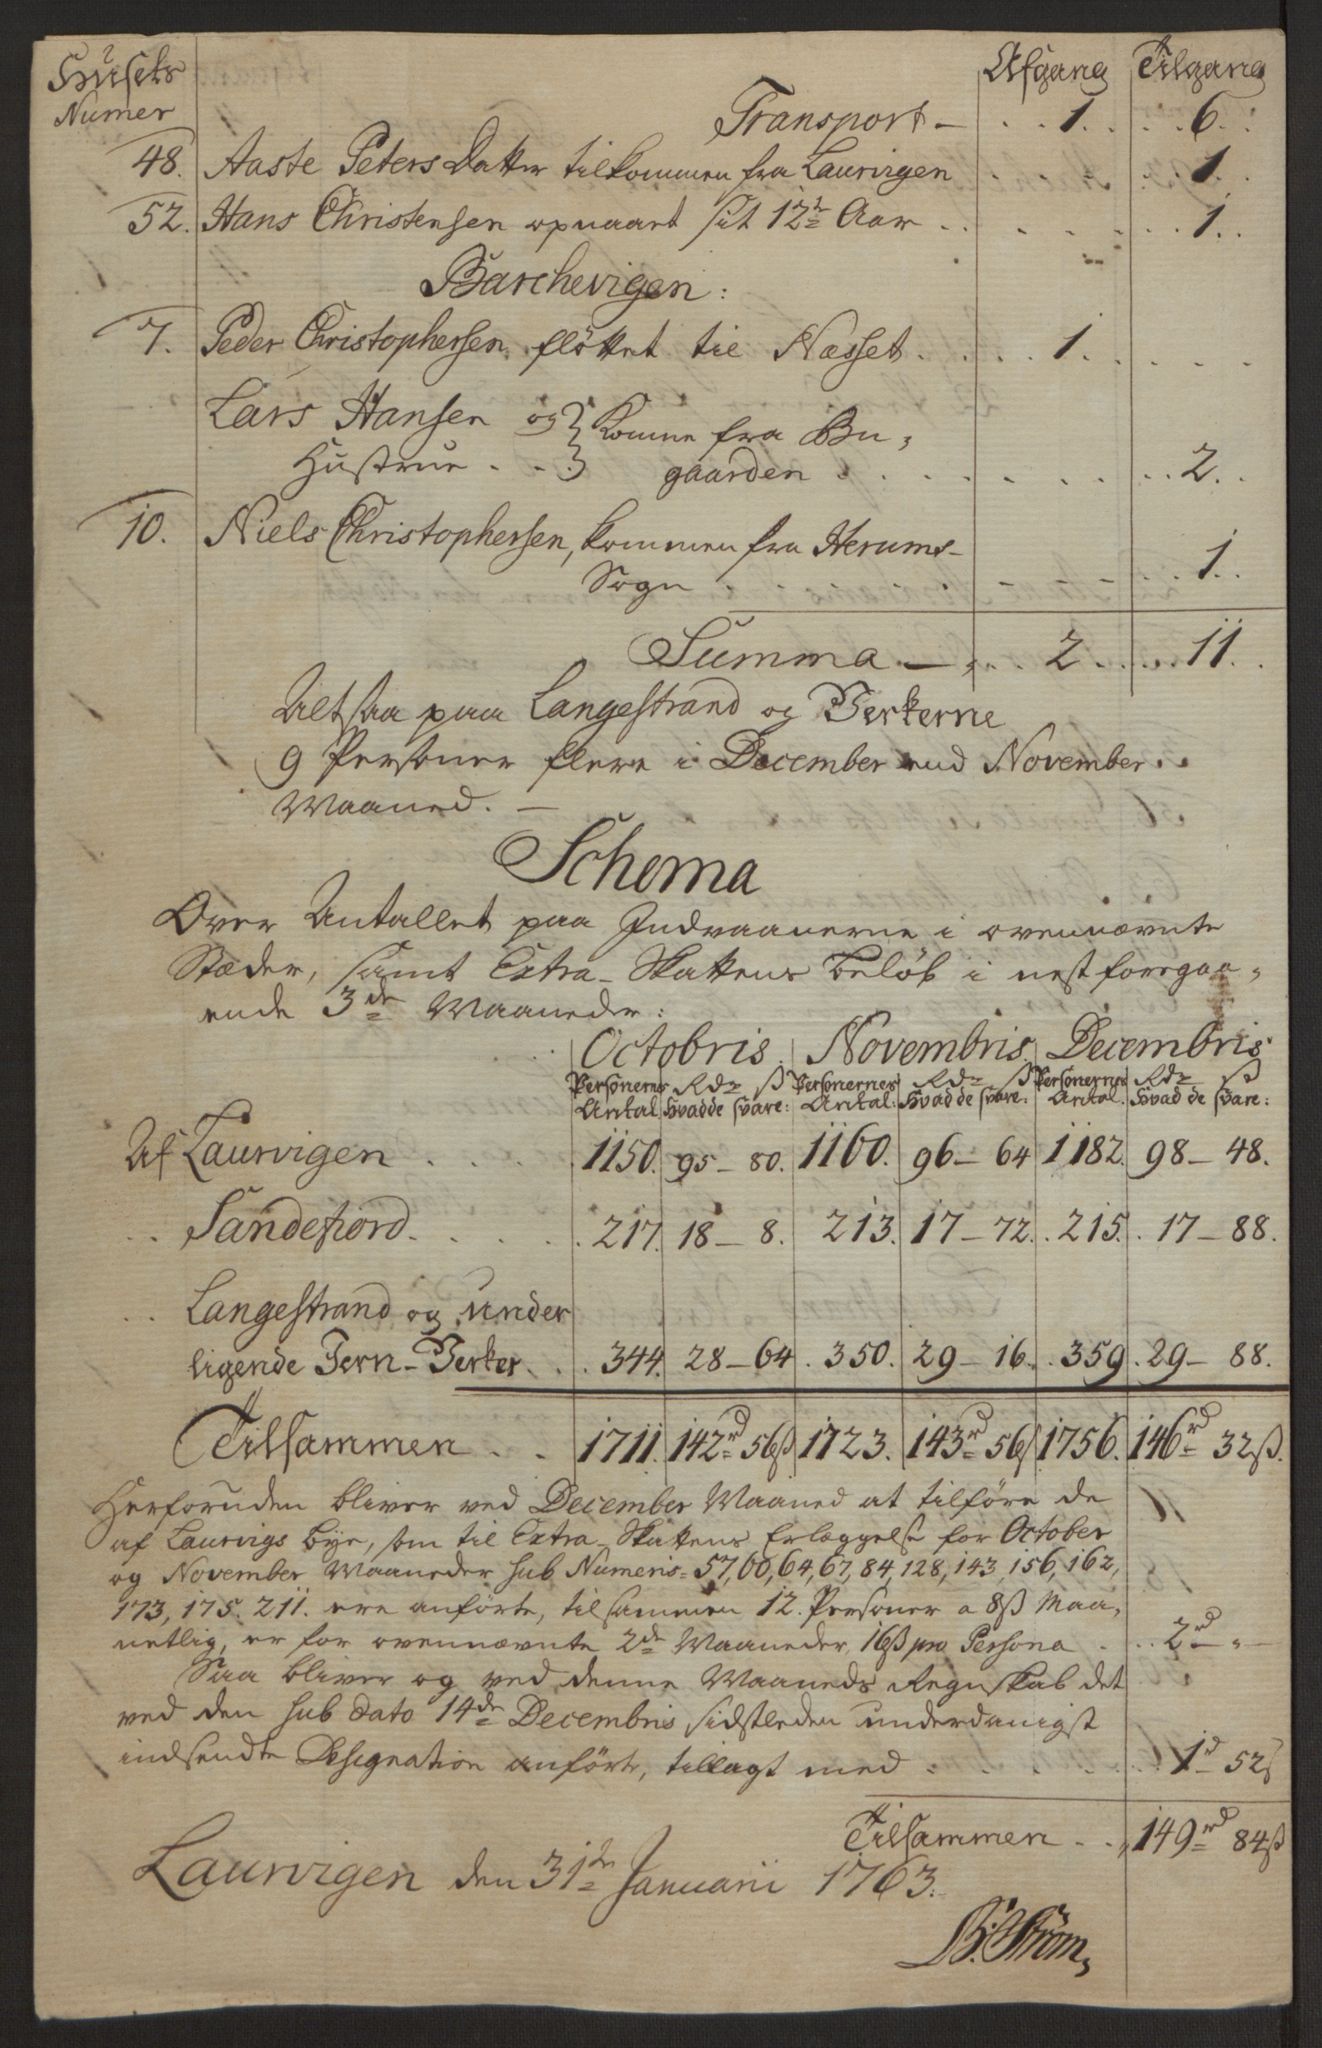 Husets Numer Afgang Tilgang
Transport — 1. 6.
48. Aaste Peters Datter tilkommen fra Laurvigen 1.
52. Hans Christensen opnaaet sit 12te Aar 1.
Barchevigen:
7. Peder Christophersen fløttet til Næsset 1.
Lars Hansen og } komne fra Bu-
Hustrue } gaarden 2.
10. Niels Christophersen, kommen fra Herums-
Sogn 1.
Summa — 2. 11.
Altsaa paa Langestrand og Verkerne
9 Personer flere i December end November
Maaned. —
Schema
Over Antallet paa Indvaanerne i ovennævnte
Stæder, samt Extra-Skattens beløb i nestforegaa-
ende 3de Maaneder:
Octobris. Novembris. Decembris.
Personernes Rdr ß Personernes Rdr ß Personernes Rdr ß
Antal. Hvad de svare: Antal: Hvad de svare: Antal. Hvad de svare:
Af Laurvigen 1150. 95 – 80. 1160. 96 – 64 1182. 98 – 48.
Sandefiord 217. 18 – 8. 213. 17 – 72. 215. 17 – 88.
Langestrand og under
ligende Jern-Verker 344. 28 – 64. 350. 29 – 16. 359. 29 – 88.
Tilsammen 1711. 142rd 56ß 1723. 143rd 56ß 1756. 146rd 32ß.
Herforuden bliver ved December Maaned at tilføre de
af Laurvigs bye, som til Extra-Skattens Erlæggelse for October
og November Maaneder sub Numeris: 57, 60, 64, 67, 84, 128, 143, 156, 162,
173, 175. 211. ere anførte, tilsammen 12. Personer a 8ß Maa-
netlig, er for ovennævnte 2de Maaneder, 16ß pro Persona 2rd „ —
Saa bliver og ved denne Maaneds Regnskab det
ved den sub dato 14de Decembris sidstleden underdanigst
indsendte Designation anført, tillagt med 1rd 52ß
Tilsammen 149rd 84ß
Laurvigen den 31te Januarii 1763.
B: Strøm,